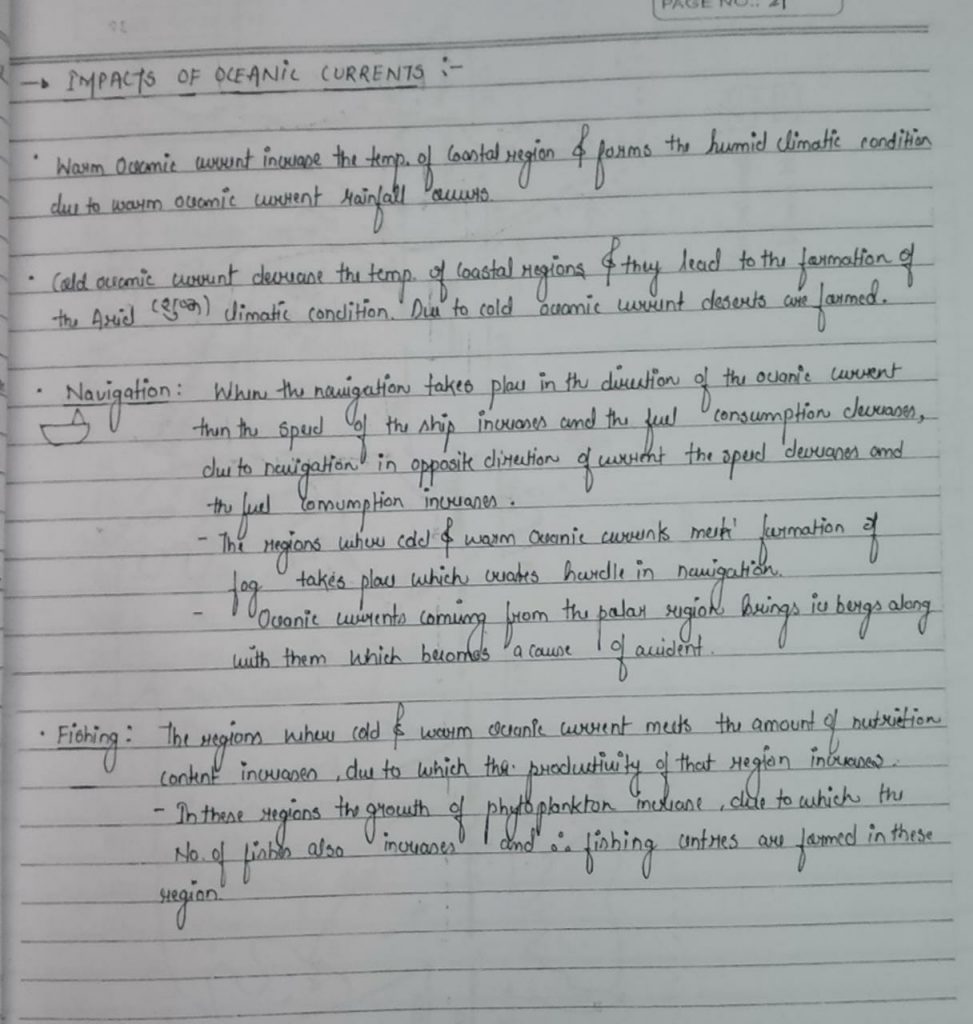 PAGE NO.: 21
→ IMPACTS OF OCEANIC CURRENTS :-
• Warm Oceanic current increase the temp. of Coastal region & forms the humid climatic condition
due to warm oceanic current rainfall occurs.
• Cold oceanic current decrease the temp. of Coastal regions & they lead to the formation of
the Arid (शुष्क) climatic condition. Due to cold oceanic current deserts are formed.
• Navigation : When the navigation takes place in th direction of the oceanic current
then the speed of the ship increases and the fuel consumption decreases,
due to navigation in opposite direction of current the speed decreases and
the fuel consumption increases.
- The regions where cold & warm oceanic currents meets formation of
fog takes place which creates hurdle in navigation.
- Oceanic currents coming from the polar region brings ice bergs along
with them which becomes a cause of accident.
• Fishing : The regions where cold & warm oceanic current meets the amount of nutrietion
content increases, due to which the productivity of that region increases.
- In these regions the growth of phytoplankton increase, due to which the
No. of fishes also increases and ∴ fishing centries are formed in these
region.